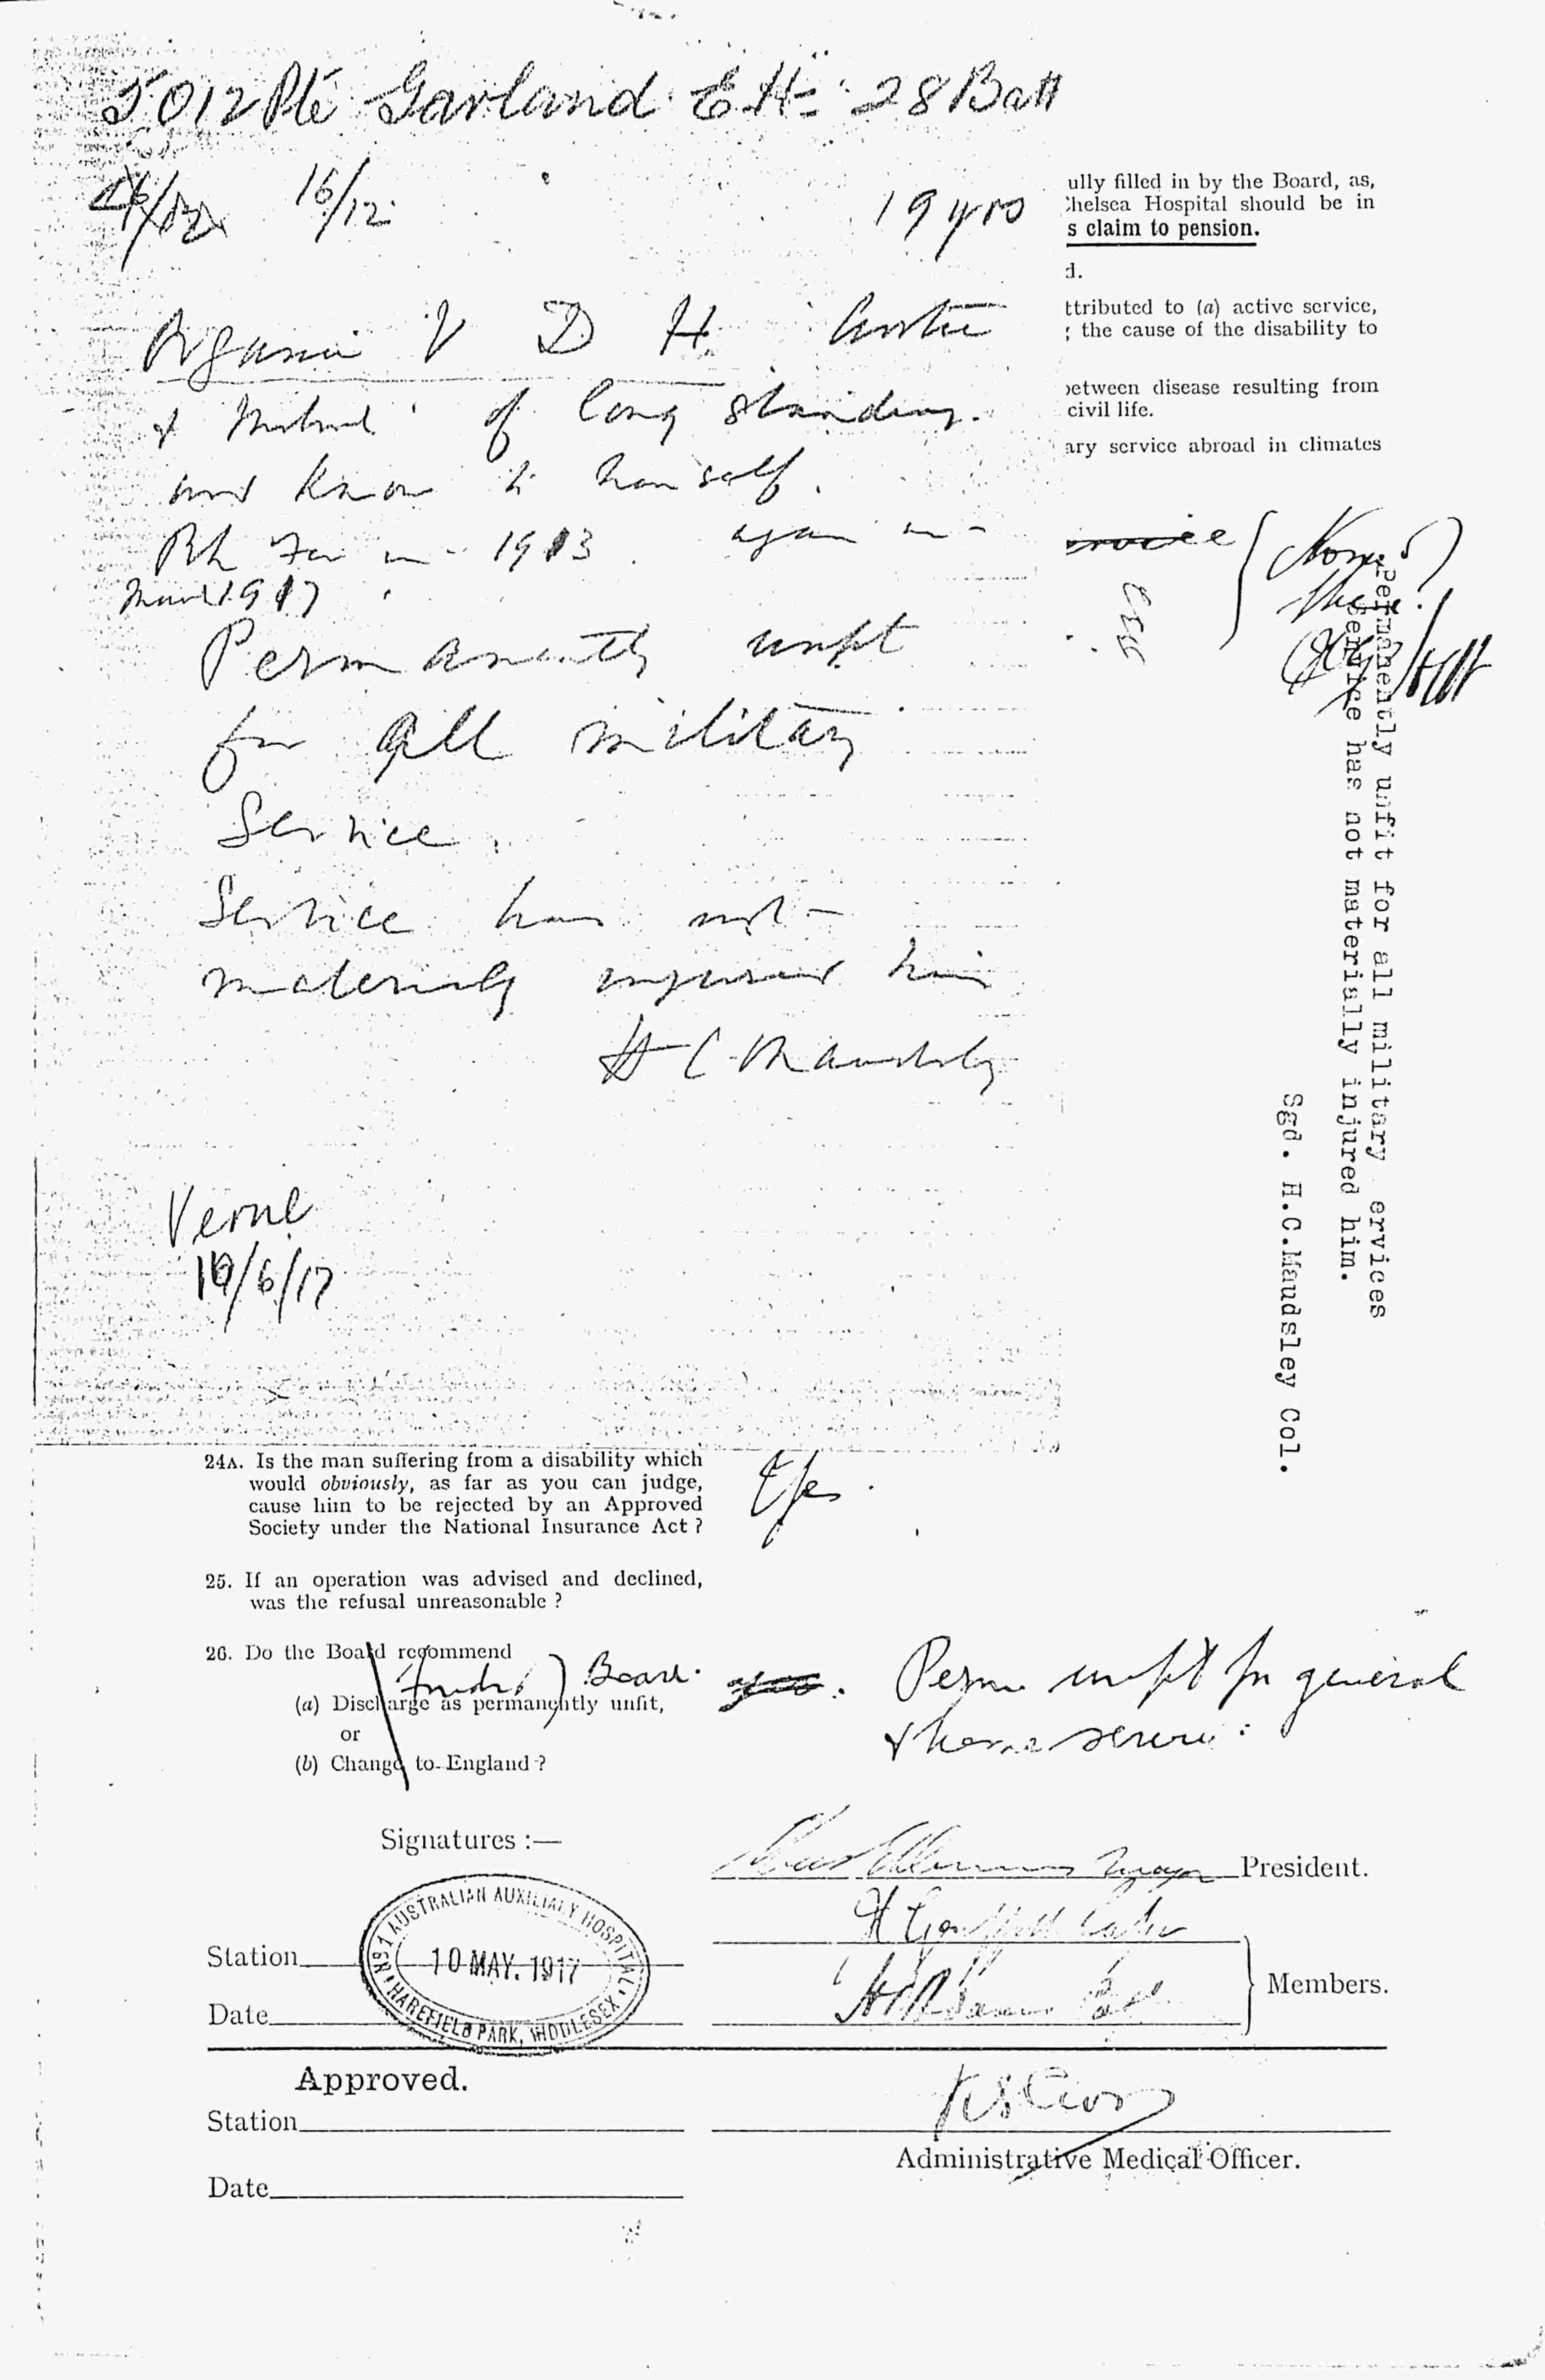 5012 Pte Garland E H: 28 Batt
16/12 19 yrs
Organic V D H Aortic
& Mitral of long standing.
and know to himself.
Rh Fev in 1913. again in
1917
Permanently unfit
for All military
Service.
Service has not
materially injured him
H C Maudsley
Verne
10/6/17
ully filled in by the Board, as,
helsea Hospital should be in
s claim to pension.
d.
ttributed to (a) active service,
; the cause of the disability to
between disease resulting from
civil life.
ary service abroad in climates
Permanently unfit for all military ervices
Service has not materially injured him.
Sgd. H.C.Maudsley Col.
24A. Is the man suffering from a disability which
would obviously, as far as you can judge,
cause him to be rejected by an Approved
Society under the National Insurance Act ?
Yes.
25. If an operation was advised and declined,
was the refusal unreasonable ?
26. Do the Board recommend
Board.
(a) Discharge as permanently unfit,
or
(b) Change to England ?
Perm unfit for general
& home service
Signatures :—
President.
Members.
Station
Date
No 1 AUSTRALIAN AUXILIARY HOSPITAL
10 MAY. 1917
HAREFIELD PARK, MIDDLESEX
Approved.
Station
Administrative Medical Officer.
Date